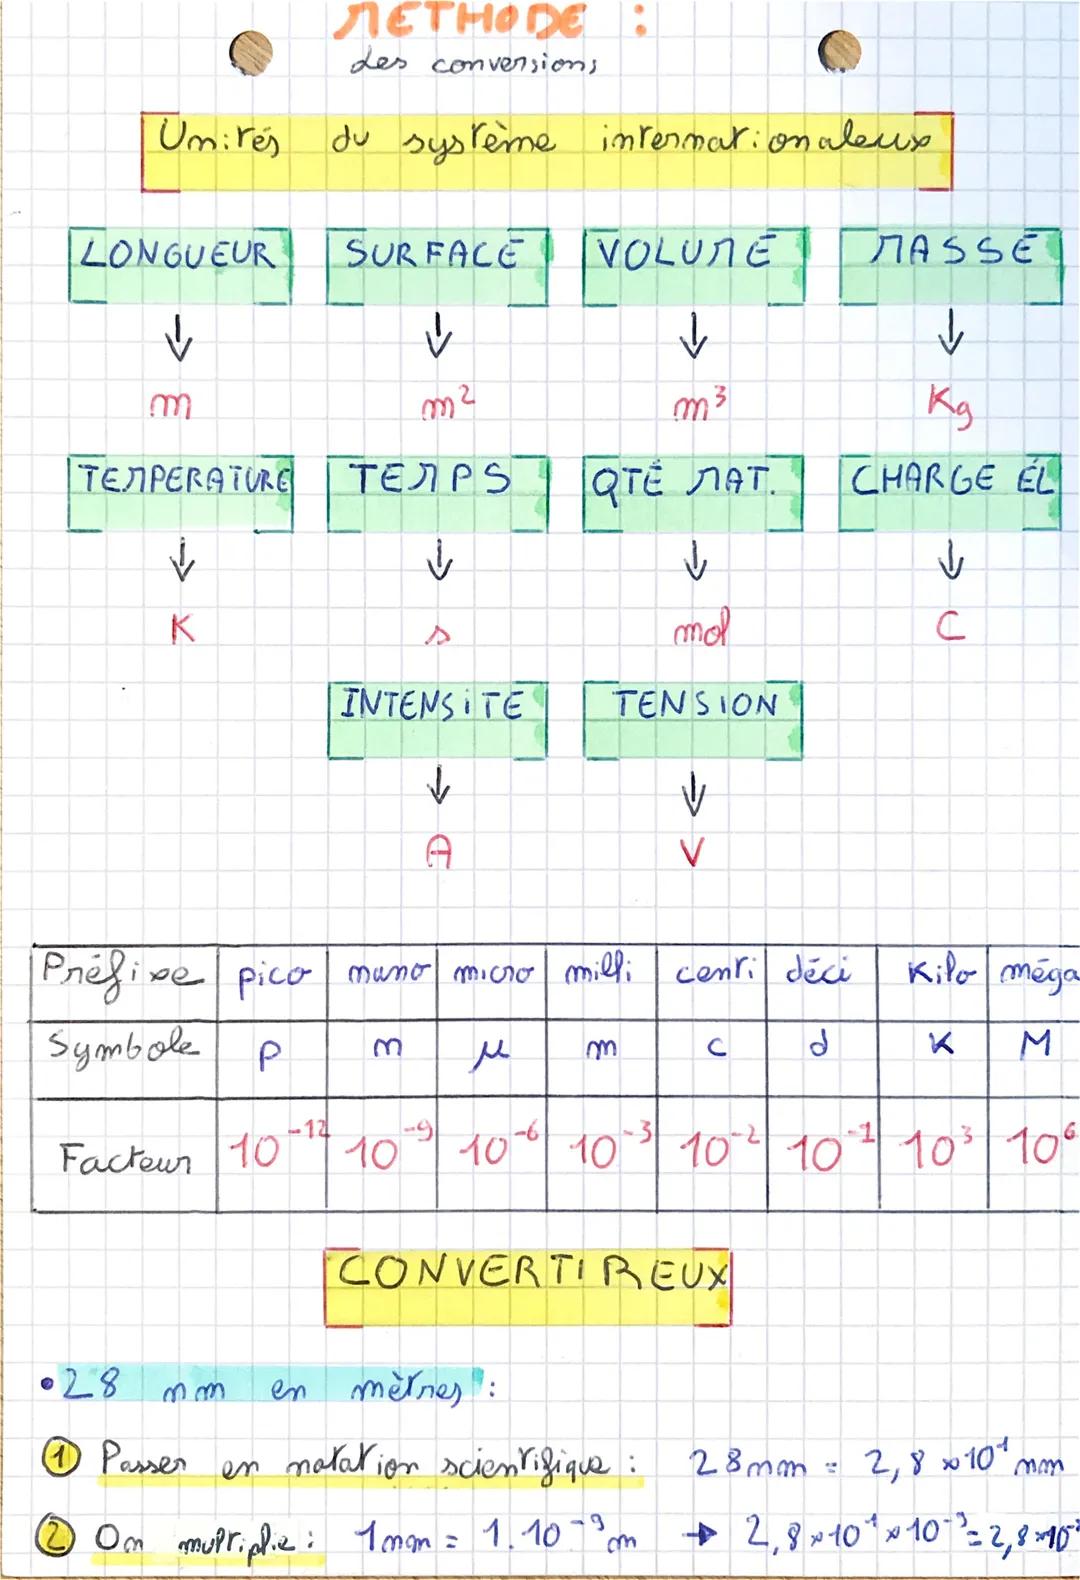 METHODE :
des conversions
Unités du système internationaleux
LONGUEUR SURFACE VOLUME MASSE
↓ ↓ ↓ ↓
m m² m³ Kg
TEMPERATURE TEMPS QTÉ MAT. CHARGE ÉL
↓ ↓ ↓ ↓
K s mol C
INTENSITE TENSION
↓ ↓
A V
Préfixe pico nano micro milli centi déci Kilo méga
Symbole p n µ m c d K M
Facteur 10⁻¹² 10⁻⁹ 10⁻⁶ 10⁻³ 10⁻² 10⁻¹ 10³ 10⁶
CONVERTIREUX
• 28 nm en mètres :
① Passer en notation scientifique : 28nm = 2,8 × 10¹ nm
② On multiplie : 1nm = 1.10⁻⁹ m → 2,8×10¹ × 10⁻⁹ = 2,8×10